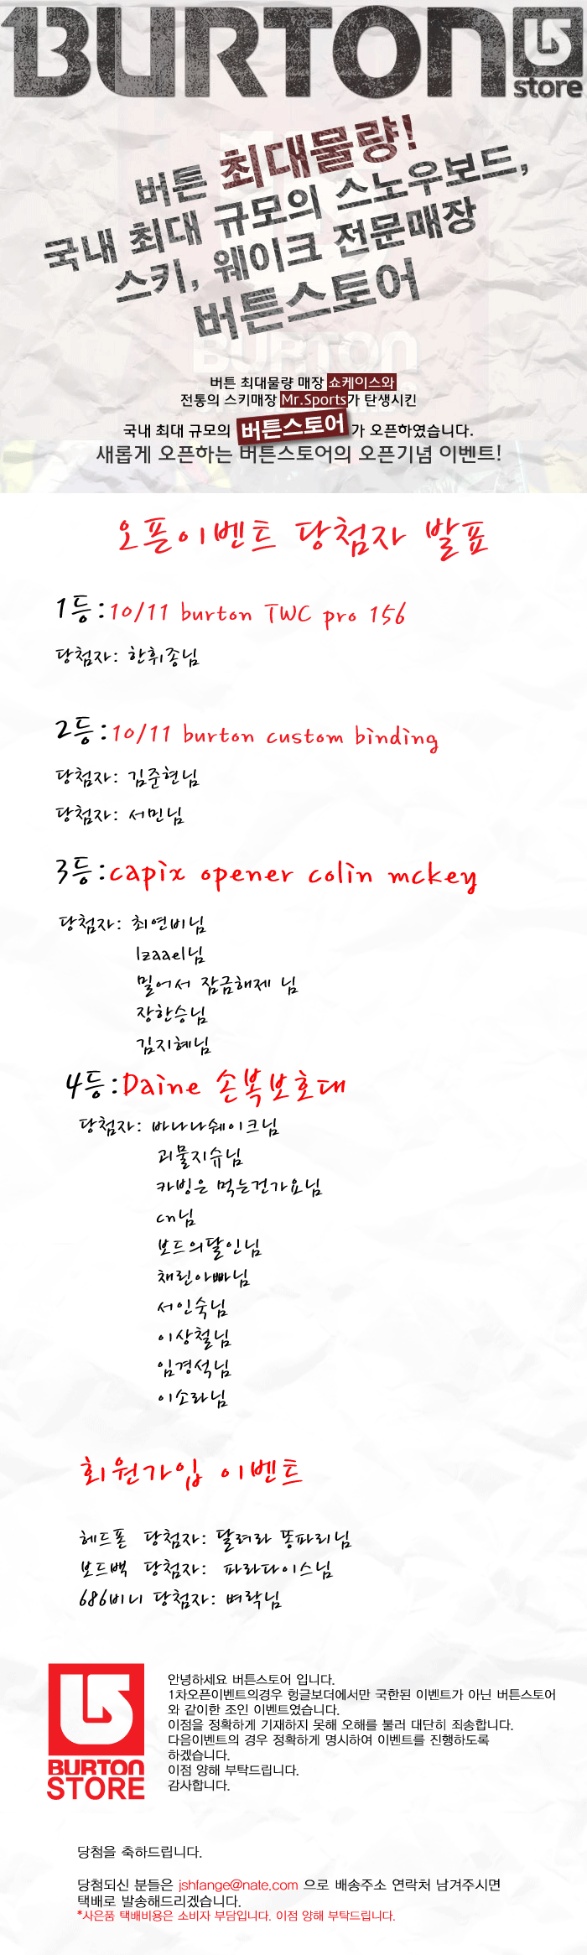 BURTON
store
버튼 최대물량!
국내 최대 규모의 스노우보드,
스키, 웨이크 전문매장
버튼스토어
BURTON
버튼 최대물량 매장 쇼케이스와
전통의 스키매장 Mr.Sports가 탄생시킨
국내 최대 규모의 버튼스토어 가 오픈하였습니다.
새롭게 오픈하는 버튼스토어의 오픈기념 이벤트!
오픈이벤트 당첨자 발표
1등:10/11 burton TWC pro 156
당첨자: 한휘종님
2등:10/11 burton custom binding
당첨자: 김준현님
당첨자: 서민님
3등:capix opener colin mckey
당첨자: 최연비님
Izaael님
밀어서 잠금해제 님
장한승님
김지혜님
4등:Daine 손목보호대
당첨자: 바나나쉐이크님
괴물지슈님
카빙은 먹는건가요님
cn님
보드의달인님
채린아빠님
서인숙님
이상철님
임경석님
이소라님
회원가입 이벤트
헤드폰 당첨자: 달려라 똥파리님
보드백 당첨자: 파라다이스님
686비니 당첨자: 벼락님
BURTON
STORE
안녕하세요 버튼스토어 입니다.
1차오픈이벤트의경우 헝글보더에서만 국한된 이벤트가 아닌 버튼스토어
와 같이한 조인 이벤트였습니다.
이점을 정확하게 기재하지 못해 오해를 불러 대단히 죄송합니다.
다음이벤트의 경우 정확하게 명시하여 이벤트를 진행하도록
하겠습니다.
이점 양해 부탁드립니다.
감사합니다.
당첨을 축하드립니다.
당첨되신 분들은 jshfange@nate.com 으로 배송주소 연락처 남겨주시면
택배로 발송해드리겠습니다.
*사은품 택배비용은 소비자 부담입니다. 이점 양해 부탁드립니다.